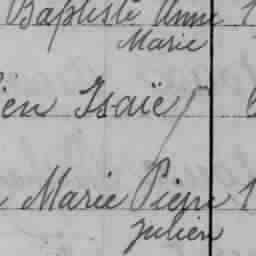 Baptiste Anne 1
Marie
ien Isaïe
Marie Pierre 1
Julien